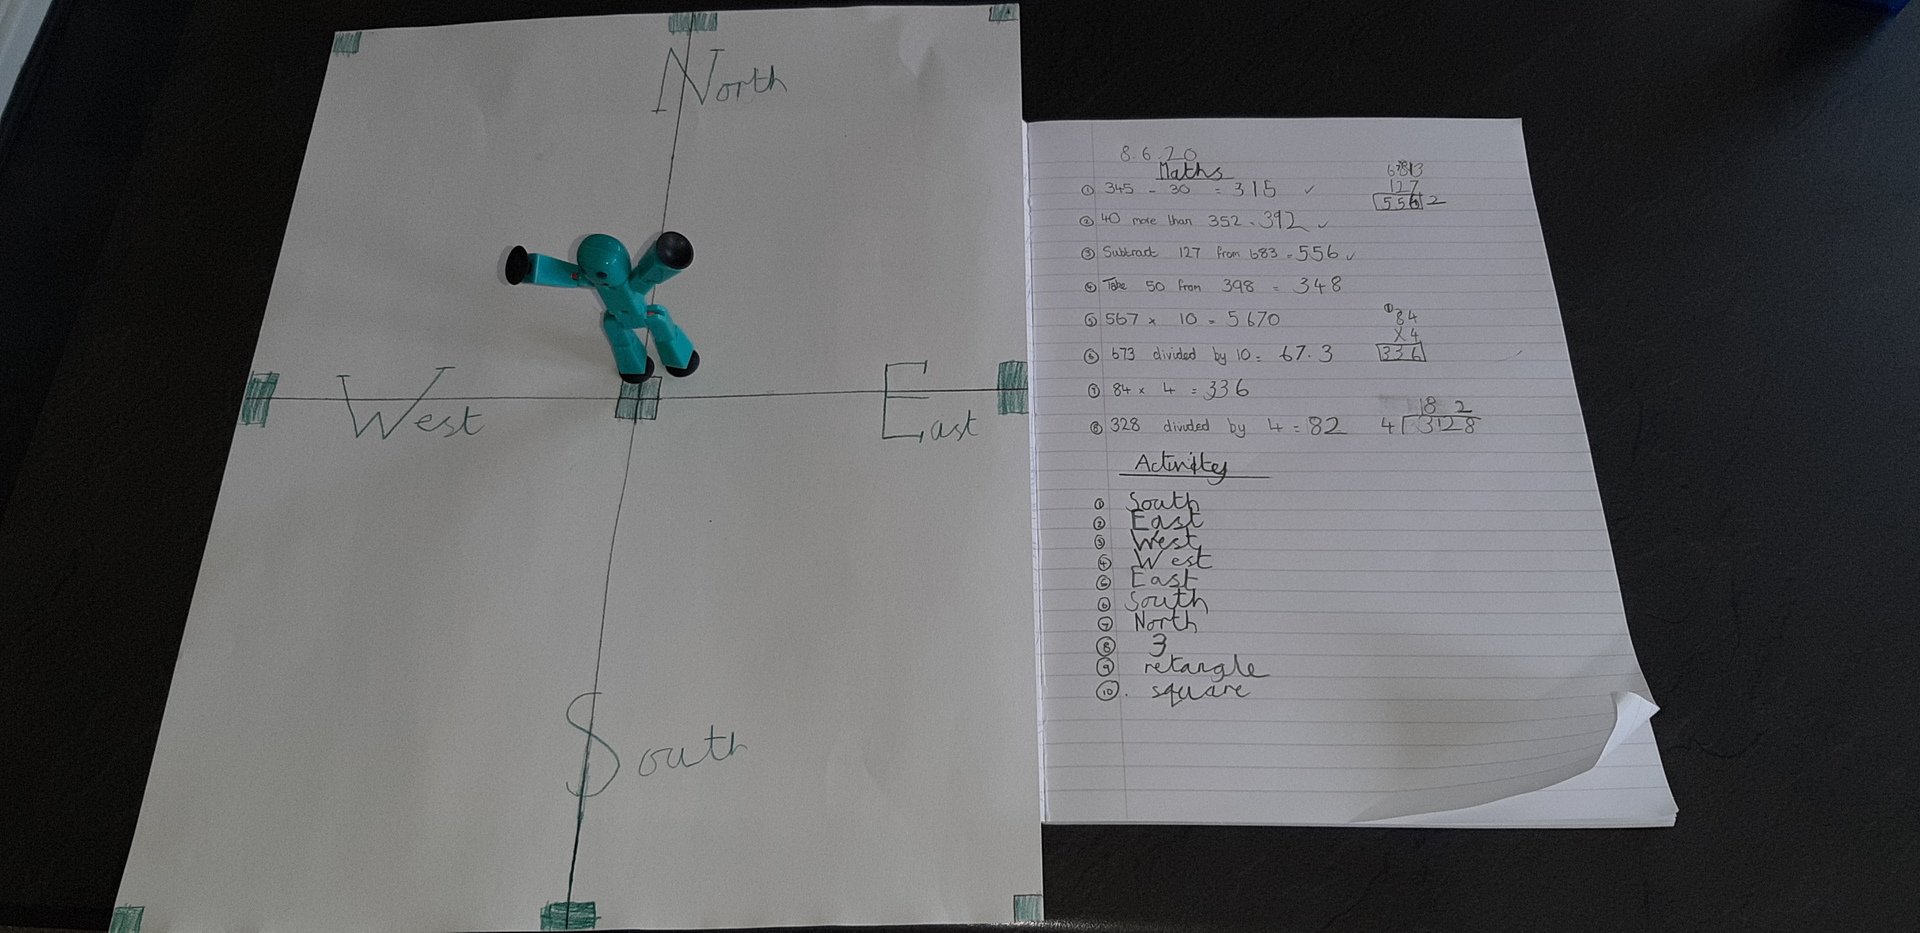 North
West
East
South
8.6.20
Maths
① 345 - 30 = 315 ✓
② 40 more than 352 = 392 ✓
③ Subtract 127 from 683 = 556 ✓
④ Take 50 from 398 = 348
⑤ 567 × 10 = 5670
⑥ 673 divided by 10 = 67.3
⑦ 84 × 4 = 336
⑧ 328 divided by 4 = 82
127
84
×4
336
Activity
① South
② East
③ West
④ West
⑤ East
⑥ South
⑦ North
⑧ 3
⑨ retangle
⑩. square